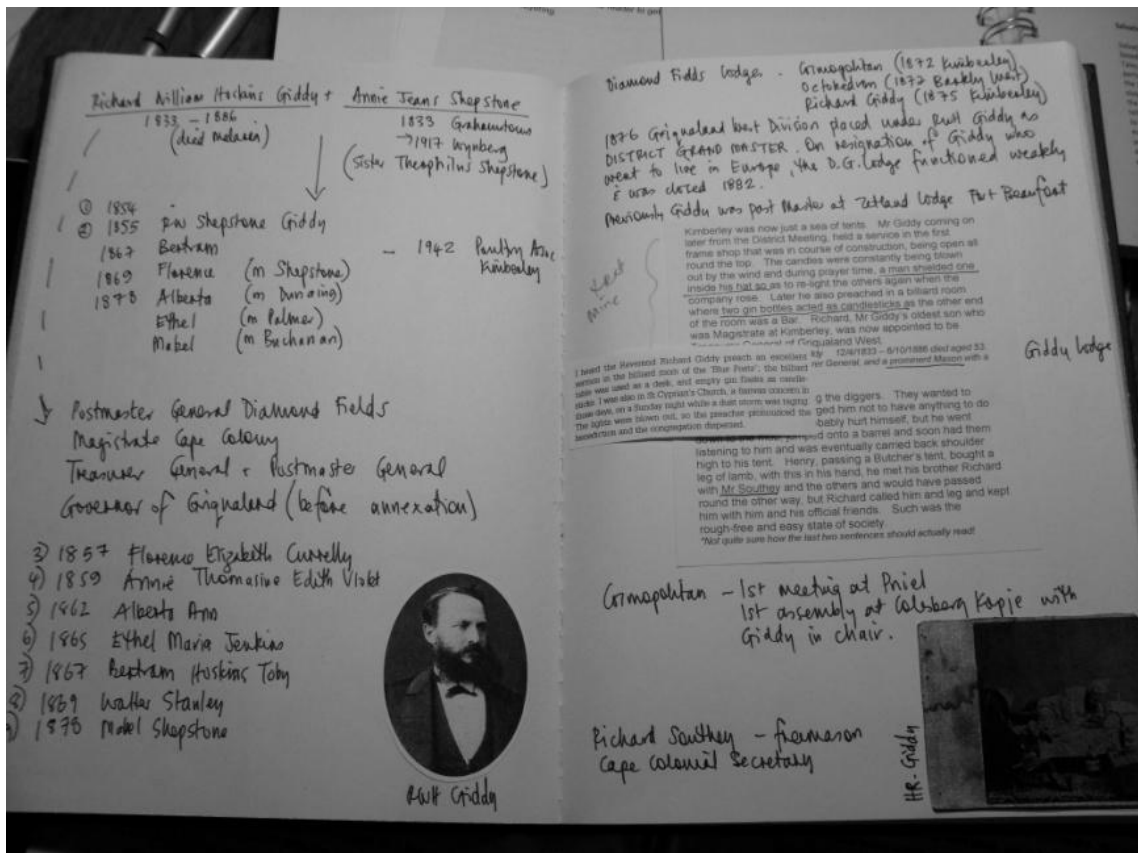 Richard William Hoskins Giddy + Annie Jeans Shepstone
1833 – 1886
(died malaria)
1833 Grahamstown
→ 1917 Wynberg
(Sister Theophilus Shepstone)
① 1854
② 1855 RW Shepstone Giddy
1867 Bertram – 1942 Poultry Assc
Kimberley
1869 Florence (m Shepstone)
1878 Alberta (m Dunning)
Ethel (m Palmer)
Mabel (m Buchanan)
Postmaster General Diamond Fields
Magistrate Cape Colony
Treasurer General + Postmaster General
Governor of Griqualand (before annexation)
3) 1857 Florence Elizabeth Currelly
4) 1859 Annie Thomasine Edith Violet
5) 1862 Alberta Ann
6) 1865 Ethel Maria Jenkins
7) 1867 Bertram Hoskins Toby
8) 1869 Walter Stanley
9) 1878 Mabel Shepstone
RWH Giddy
Diamond Fields Lodges - Cosmopolitan (1872 Kimberley)
Octohedron (1872 Barkly West)
Richard Giddy (1875 Kimberley)
1876 Griqualand West Division placed under RWH Giddy as
DISTRICT GRAND MASTER. On resignation of Giddy who
went to live in Europe, the D.G. Lodge functioned weakly
& was closed 1882.
Previously Giddy was past Master at Zetland Lodge Fort Beaufort
Kimberley was now just a sea of tents. Mr Giddy coming on
later from the District Meeting, held a service in the first
frame shop that was in course of construction, being open all
round the top. The candles were constantly being blown
out by the wind and during prayer time, a man shielded one
inside his hat so as to re-light the others again when the
company rose. Later he also preached in a billiard room
where two gin bottles acted as candlesticks as the other end
of the room was a Bar. Richard, Mr Giddy's oldest son who
was Magistrate at Kimberley, was now appointed to be
Treasurer General of Griqualand West.
Mine
12/4/1833 – 6/10/1886 died aged 53.
rer General, and a prominent Mason with a
Giddy Lodge
I heard the Reverend Richard Giddy preach an excellent
sermon in the billiard room of the 'Blue Posts'; the billiard
table was used as a desk, and empty gin flasks as candle-
sticks. I was also in St Cyprian's Church, a canvas concern in
those days, on a Sunday night while a dust storm was raging.
The lights were blown out, so the preacher pronounced the
benediction and the congregation dispersed.
g the diggers. They wanted to
ged him not to have anything to do
bably hurt himself, but he went
onto a barrel and soon had them
listening to him and was eventually carried back shoulder
high to his tent. Henry, passing a Butcher's tent, bought a
leg of lamb, with this in his hand, he met his brother Richard
with Mr Southey and the others and would have passed
round the other way, but Richard called him and leg and kept
him with him and his official friends. Such was the
rough-free and easy state of society.
*Not quite sure how the last two sentences should actually read!
Cosmopolitan – 1st meeting at Pniel
1st assembly at Colesberg Kopje with
Giddy in chair.
Richard Southey – freemason
Cape Colonial Secretary
HR. Giddy